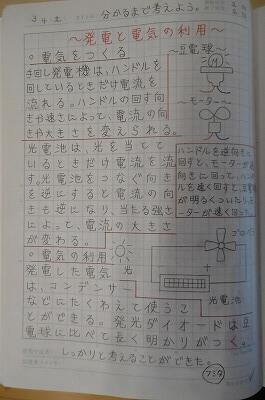 3/4 土 分かるまで考えよう。
〜発電と電気の利用〜
○電気をつくる
手回し発電機は、ハンドルを
回しているときだけ電流を
流れる。ハンドルの回す向
きや速さによって、電流の向
きや大きさを変えられる。
〜豆電球〜
〜モーター〜
光電池は、光を当てて
いるときだけ電流を流
す。光電池をつなぐ向き
を逆にすると電流の向
きも逆になり、当たる強さ
によって、電流の大きさ
が変わる。
ハンドルを逆向きに
回すと、モーターが逆
向きに回って、ハンド
ルを速く回すと、豆電球
が明るくついたり、モー
ターが速く回った。
プロペラ
光
光電池
○電気の利用
発電した電気
は、コンデンサー
などにたくわえて使うこ
とができる。発光ダイオードは豆
電球に比べて長く明かりがつく。
しっかりと考えることができた。